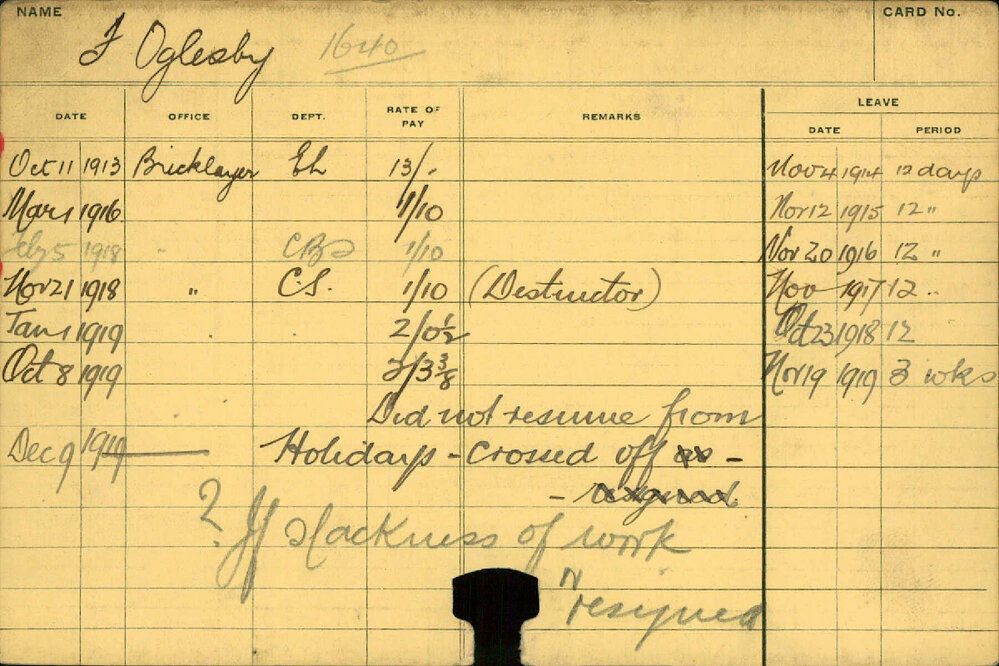 NAME
CARD No.
F Oglesby 1640
LEAVE
DATE OFFICE DEPT. RATE OF PAY REMARKS DATE PERIOD
Oct 11 1913 Bricklayer EL 13/- Nov 4 1914 12 days
Mar 1 1916 1/10 Nov 12 1915 12 "
Feby 5 1918 " CBs 1/10 Nov 20 1916 12 "
Nov 21 1918 " C.S. 1/10 (Destructor) Nov 1917 12 "
Jan 1 1919 " 2/0½ Oct 23 1918 12
Oct 8 1919 2/3⅜ Nov 19 1919 3 wks
Did not resume from
Dec 9 1919 Holidays - Crossed off as -
- resigned.
? If slackness of work
" resigned